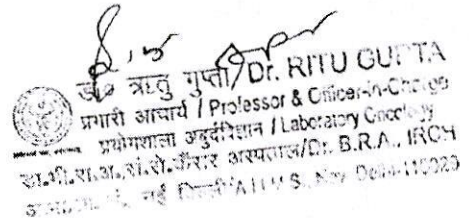 डा० ऋतु गुप्ता/Dr. RITU GUPTA
प्रभारी आचार्य / Professor & Officer-in-Charge
प्रयोगशाला अर्बुदविज्ञान / Laboratory Oncology
डा.भी.रा.अ.,सं.रो.कैंसर अस्पताल/Dr. B.R.A., IRCH
नई दिल्ली/A.I.I.M.S., New Delhi-110029